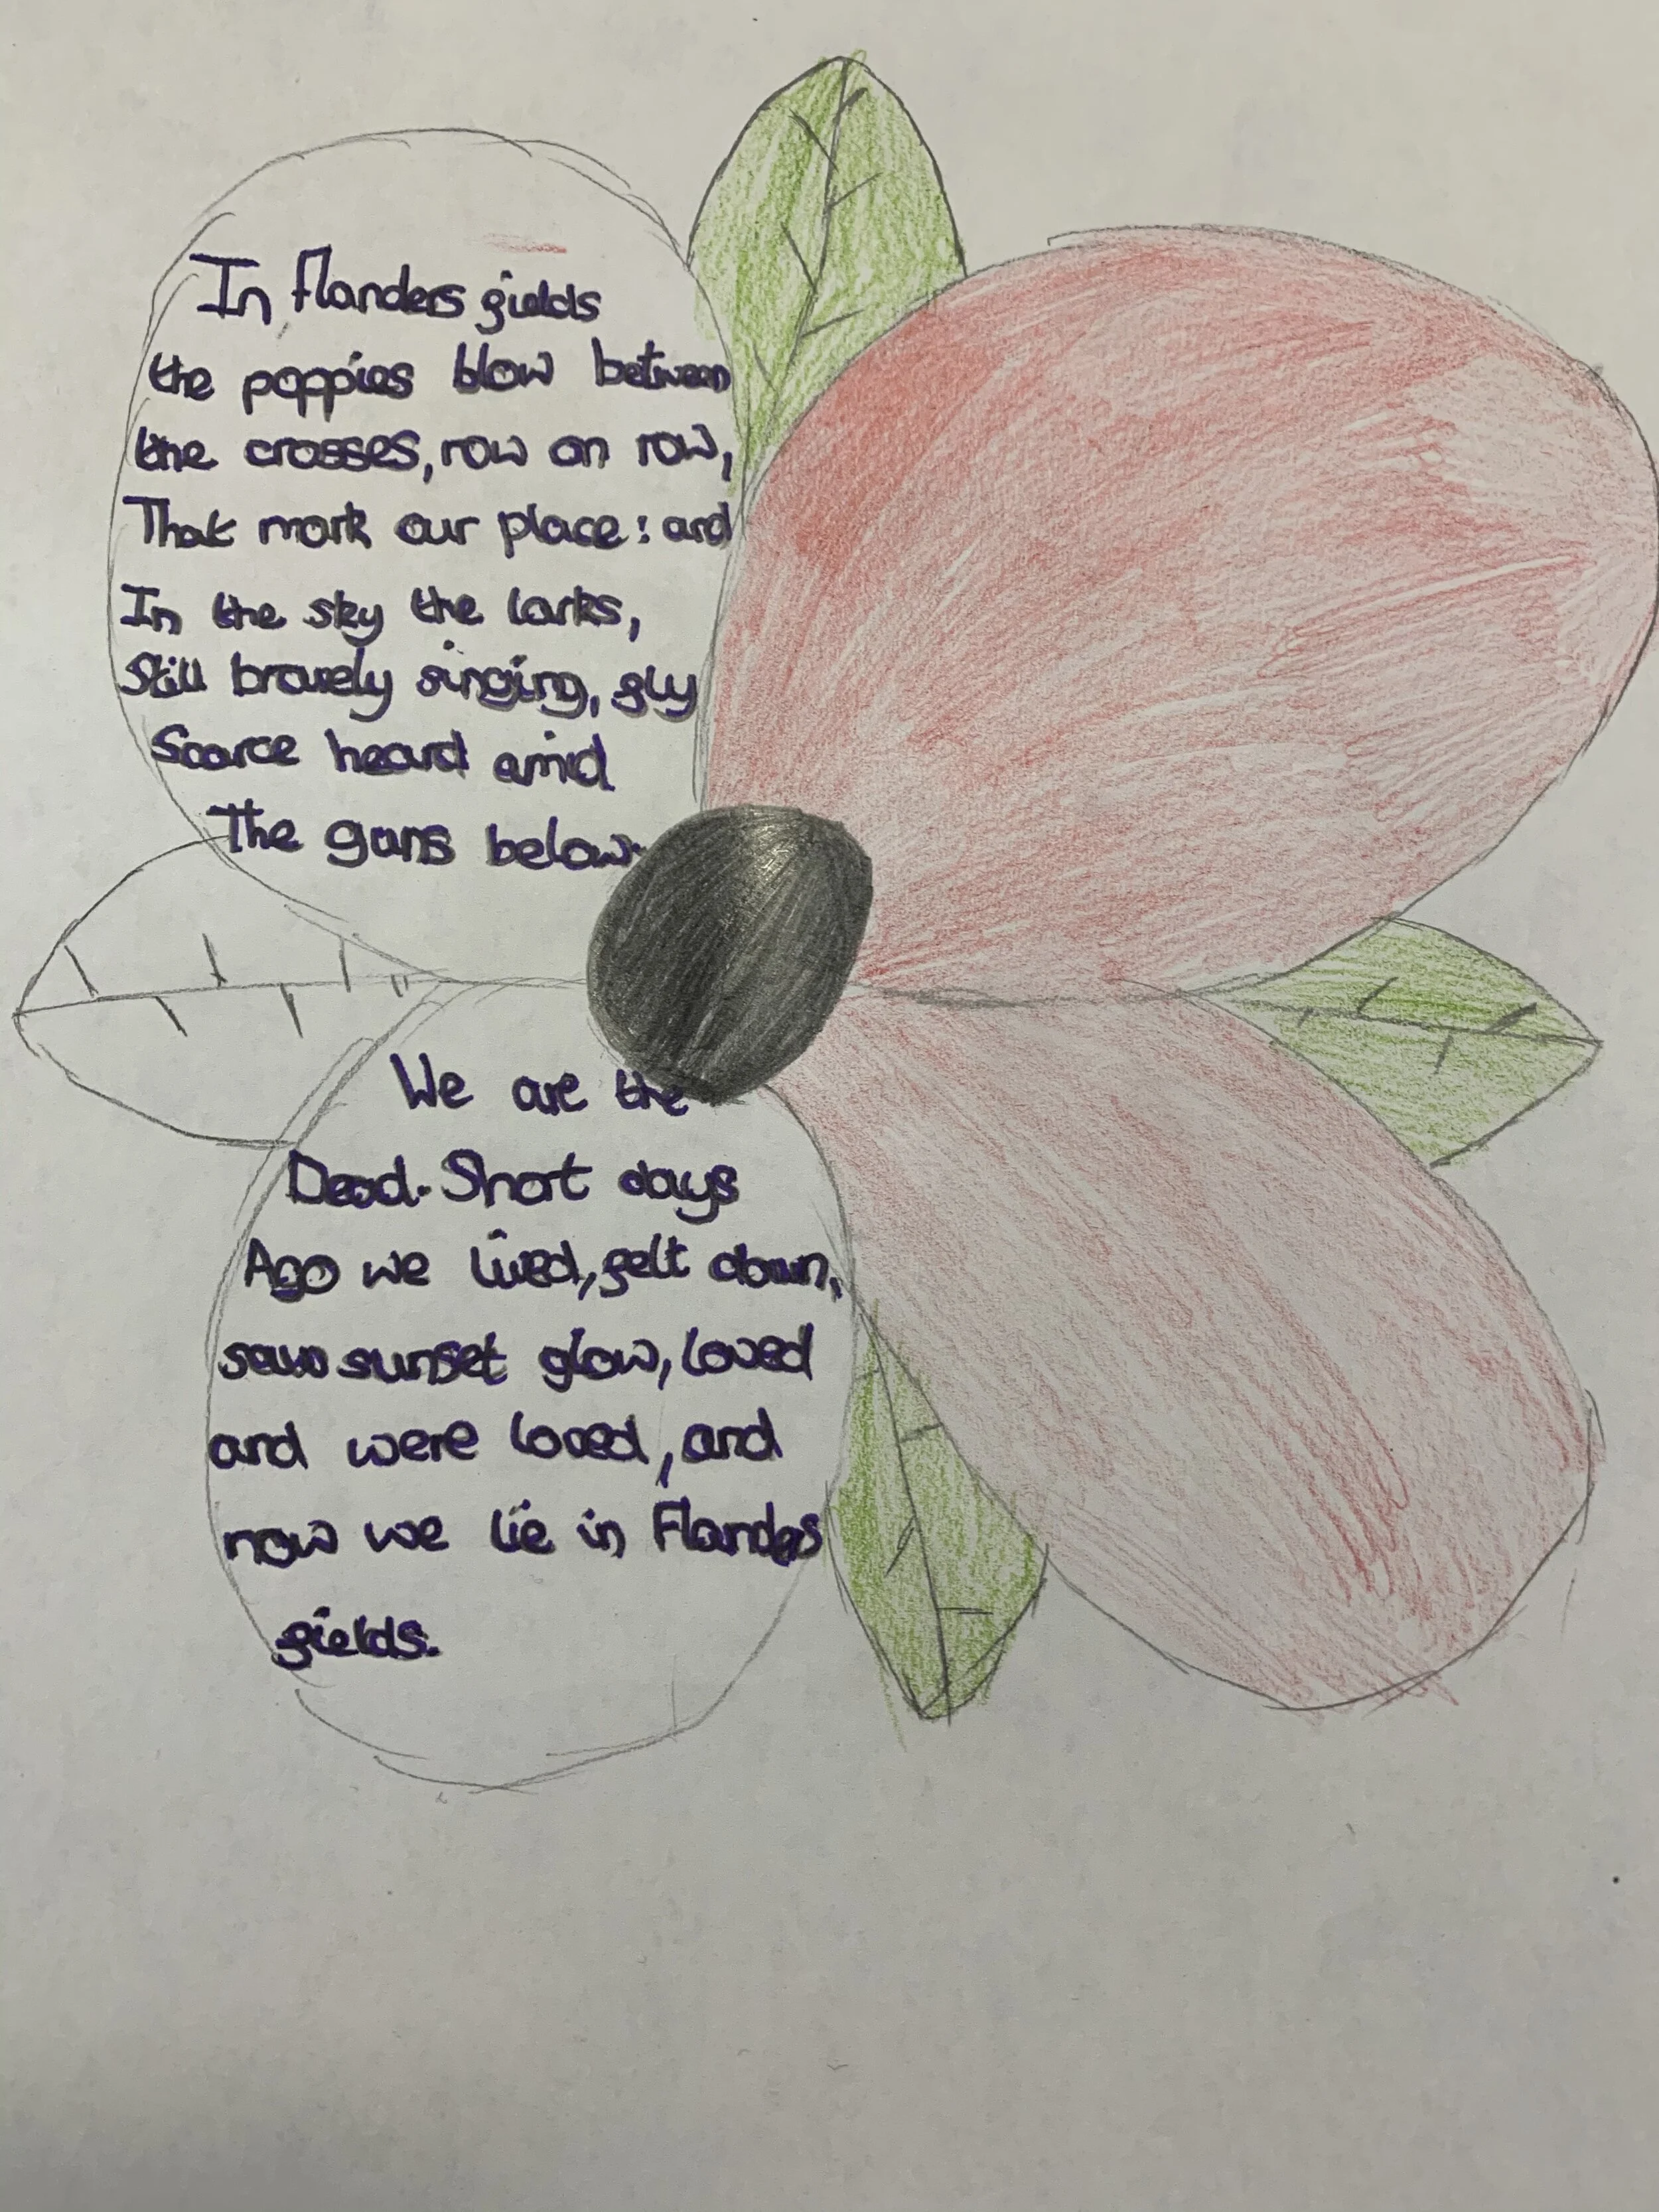 In Flanders fields
the poppies blow between
the crosses, row on row,
That mark our place: and
In the sky the larks,
Still bravely singing, fly
Scarce heard amid
The guns below.
We are the
Dead. Short days
Ago we lived, felt dawn,
saw sunset glow, loved
and were loved, and
now we lie in Flanders
fields.